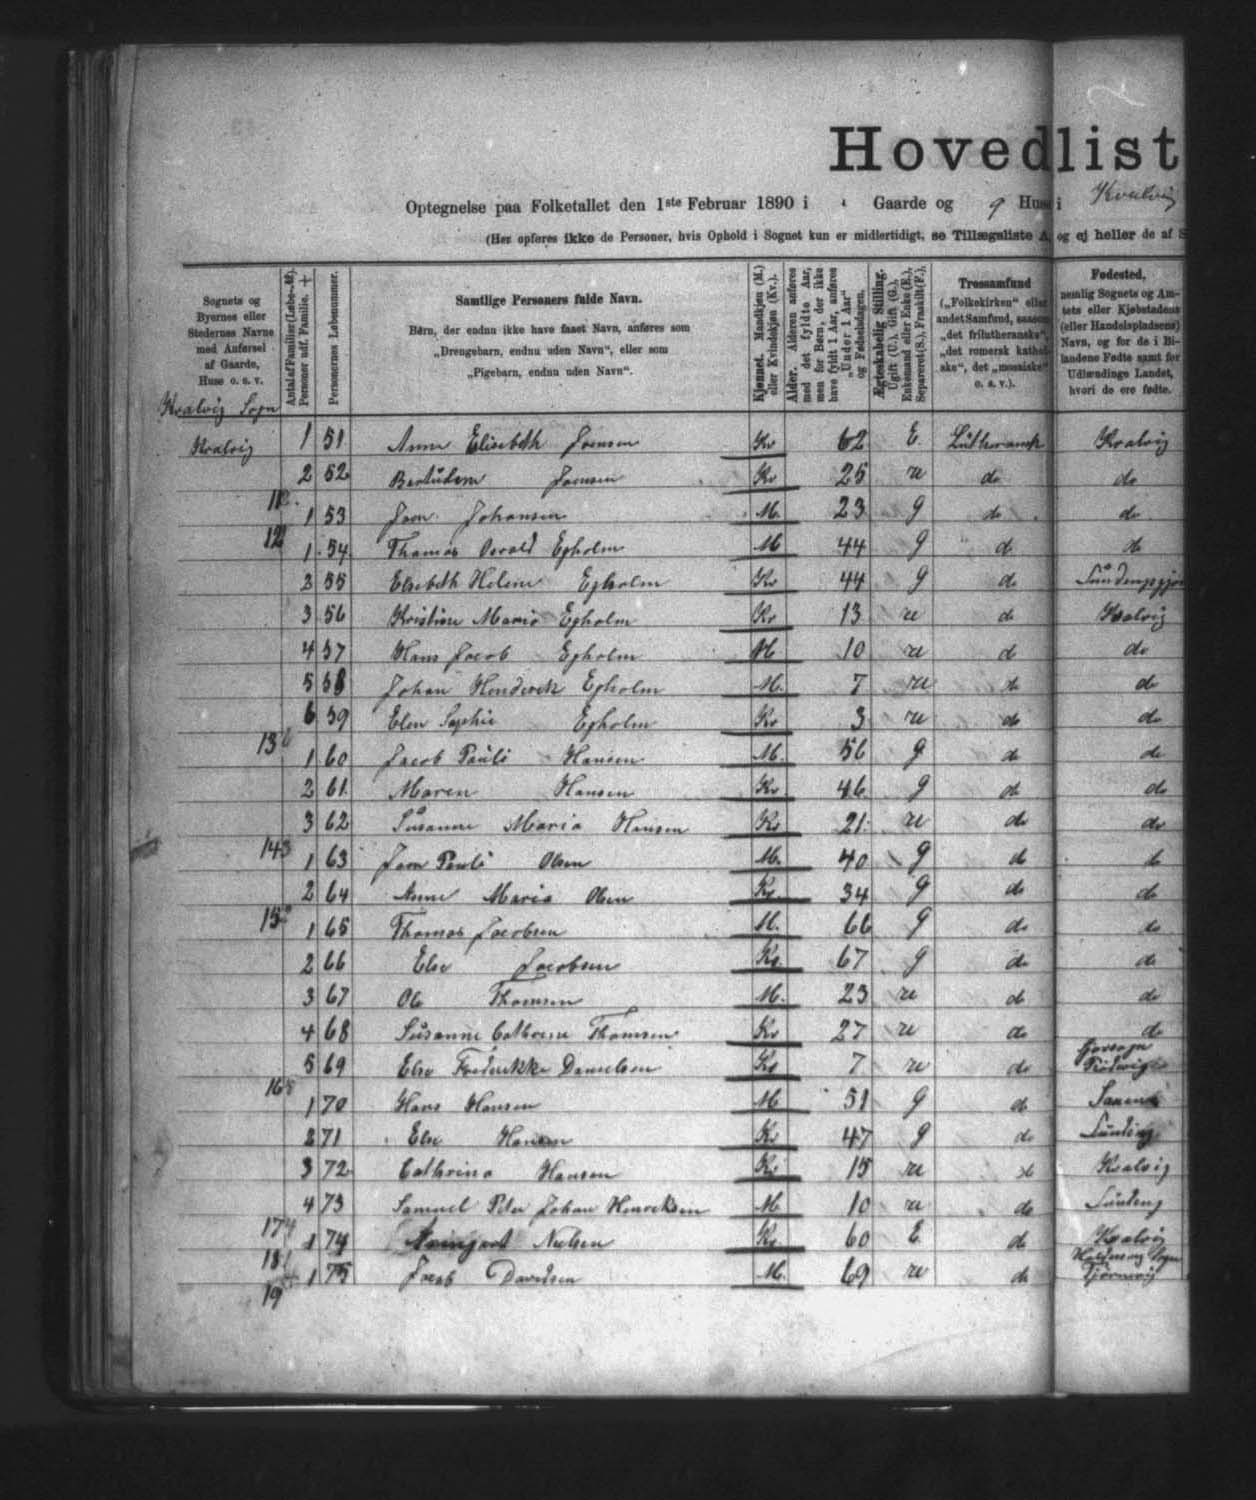 Hovedlist
Optegnelse paa Folketallet den 1ste Februar 1890 i Gaarde og 9 Huse i Kvalvig
(Her opføres ikke de Personer, hvis Ophold i Sognet kun er midlertidigt, se Tillægsliste A, og ej heller de af S
Sognets og Byernes eller Stedernes Navne med Anførsel af Gaarde, Huse o. s. v.
Antal af Familier (Løbe-№).
Personer udf. Familie.
Personernes Løbenummer.
Samtlige Personers fulde Navn.
Børn, der endnu ikke have faaet Navn, anføres som
„Drengebarn, endnu uden Navn“, eller som
„Pigebarn, endnu uden Navn“.
Kjønnet. Mandkjøn (M.) eller Kvindekjøn (Kv.).
Alder. Alderen anføres med det fyldte Aar, men for Børn, der ikke have fyldt 1 Aar, anføres „Under 1 Aar“ og Fødselsdagen.
Ægteskabelig Stilling. Ugift (U.), Gift (G.), Enkemand eller Enke (E.), Separeret (S.), Fraskilt (F.),
Trossamfund („Folkekirken“ eller andet Samfund, saasom „det frilutheranske“, „det romersk katholske“, det „mosaiske“ o. s. v.).
Fødested, nemlig Sognets og Amtets eller Kjøbstadens (eller Handelspladsens) Navn, og for de i Bilandene Fødte samt for Udlændinge Landet, hvori de ere fødte.
Kvalvig Sogn
Kvalvig 1 51 Anne Elisebeth Joensen Kv 62 E Lutheransk Kvalvig
2 52 Joensen Kv 25 u do do
11
1 53 Joen Johansen M. 23 g do do
12
1 54 Thomas Osvald Egholm M 44 g do do
2 55 Elsebeth Helene Egholm Kv 44 g do
3 56 Kristine Maria Egholm Kv 13 u do Kvalvig
4 57 Hans Jacob Egholm M 10 u do do
5 58 Johan Henderik Egholm M. 7 u do do
6 59 Elen Sophie Egholm Kv 3 u do do
13
1 60 Jacob Pauli Hansen M. 56 g do do
2 61 Maren Hansen Kv 46 g do do
3 62 Susanne Maria Hansen Kv 21 u do do
14 3
1 63 Joen Pauli Olsen M. 40 g do do
2 64 Anne Maria Olsen Kv 34 g do do
15
1 65 Thomas Jacobsen M. 66 g do do
2 66 Else Jacobsen Kv 67 g do do
3 67 Ole Thomsen M. 23 u do do
4 68 Susanne Cathrine Thomsen Kv 27 u do do
5 69 Else Frederikke Danielsen Kv 7 u do
16
1 70 Hans Hansen M 51 g do
2 71 Else Hansen Kv 47 g do
3 72 Cathrina Hansen Kv 15 u do Kvalvig
4 73 Samuel Peter Johan Henriksen M 10 u do
17 4
1 74 Nielsen Kv 60 E do Kvalvig
18 1
1 75 Jacob Davidsen M. 69 u do Tjørnevig
19